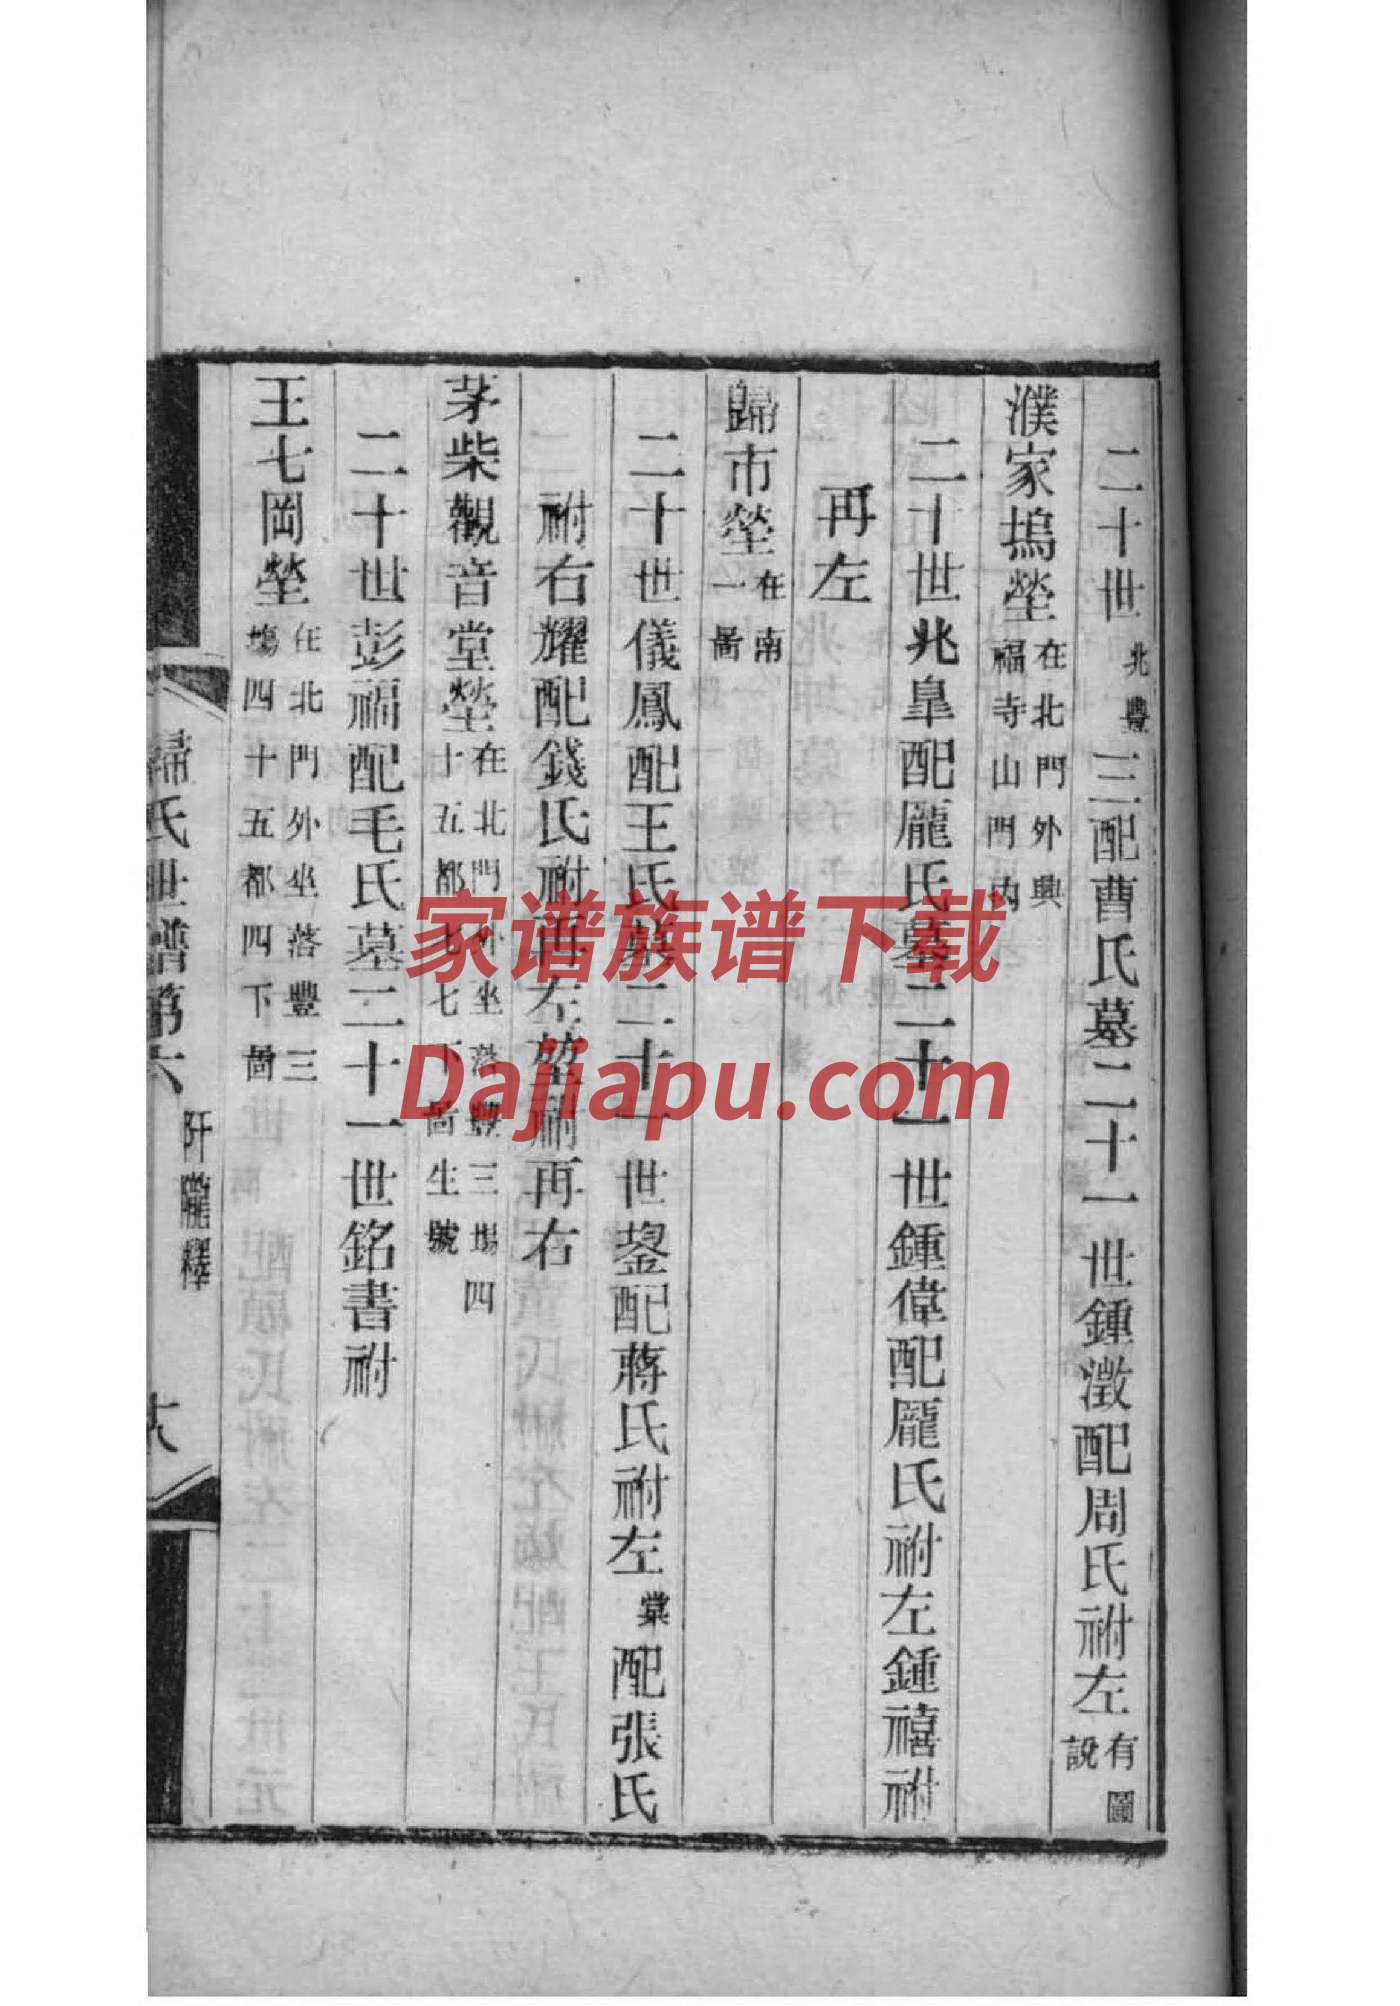 二十世兆豐三配曹氏墓二十一世鍾澂配周氏祔左有圖說
濮家塢塋在北門外興福寺山門內
二十世兆皐配龐氏墓二十一世鍾偉配龐氏祔左鍾禧祔
再左
歸市塋在南一啚
二十世儀鳳配王氏墓二十一世鋆配蔣氏祔左棠配張氏
祔右耀配錢氏祔再左堃祔再右
茅柴觀音堂塋在北門外坐落豐三場四十五都七下啚生號
二十世彭福配毛氏墓二十一世銘書祔
王七岡塋在北門外坐落豐三塲四十五都四下啚
歸氏世譜第六
阡隴釋
家谱族谱下载
Dajiapu.com